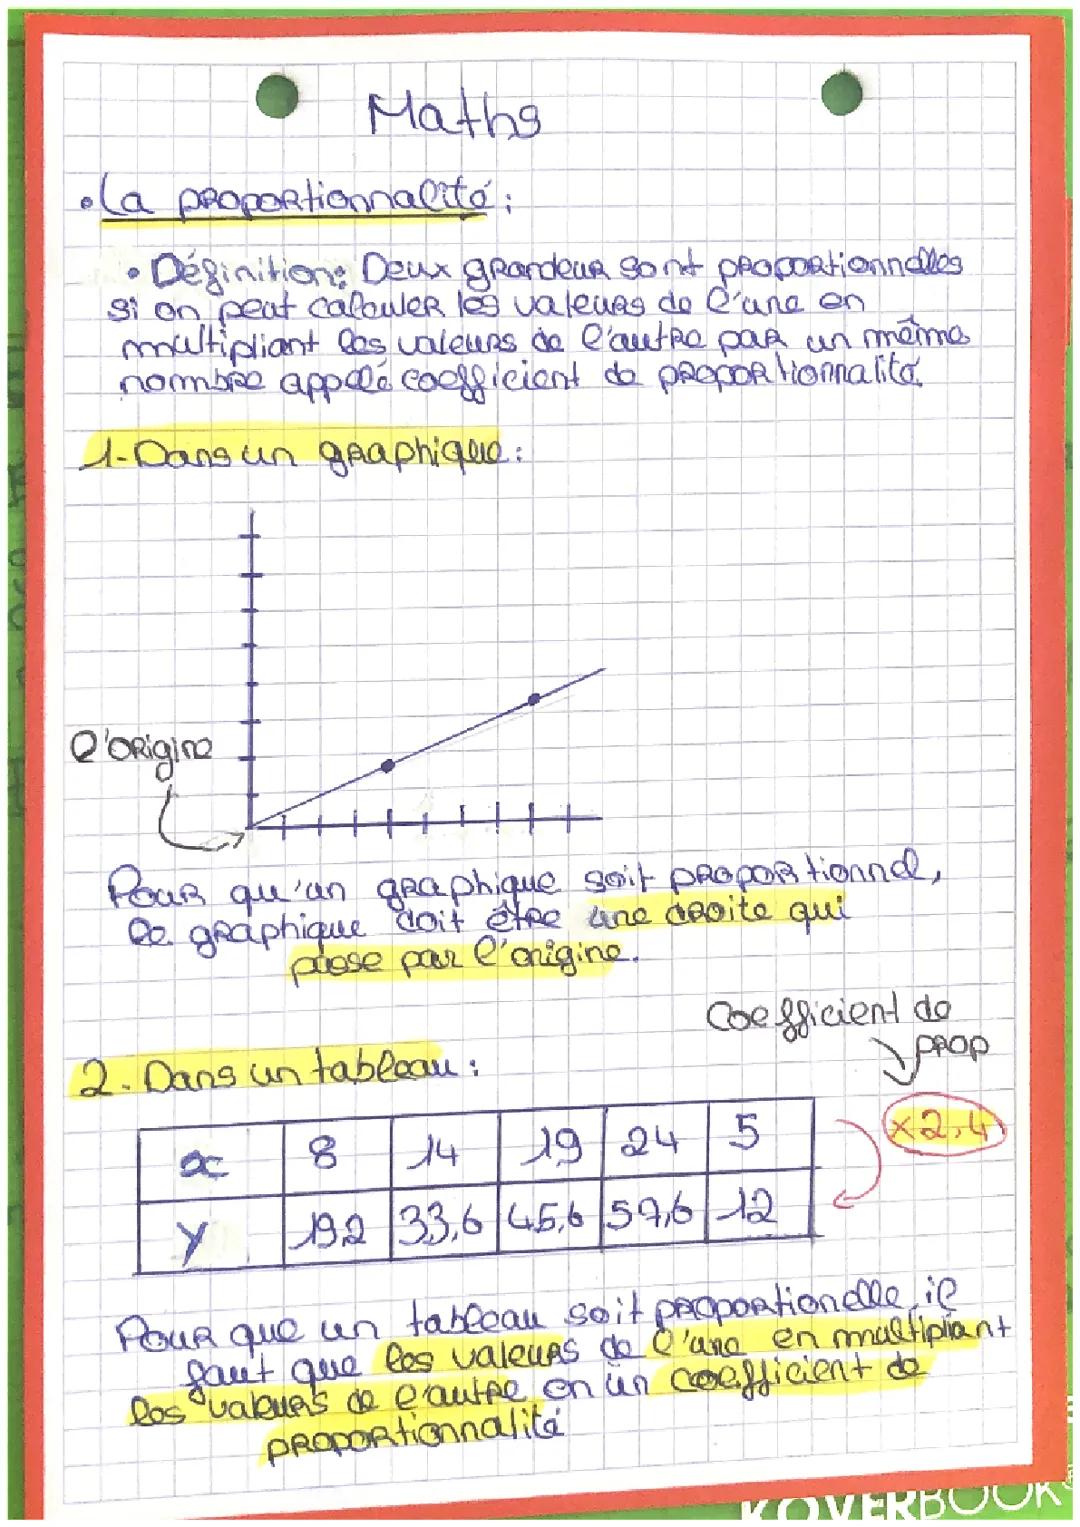 Maths
• La proportionnalité :
• Définition : Deux grandeur sont proportionnelles
si on peut calculer les valeurs de l'une en
multipliant les valeurs de l'autre par un même
nombre appelé coefficient de proportionnalité.
1-Dans un graphique :
l'origine
Pour qu'un graphique soit proportionnel,
le graphique doit être une droite qui
passe par l'origine.
Coefficient de
prop
2. Dans un tableau :
x 8 14 19 24 5
x2,4
y 19,2 33,6 45,6 57,6 12
Pour que un tableau soit proportionelle, il
faut que les valeurs de l'une en multipliant
les valeurs de l'autre en un coefficient de
proportionnalité
KOVERBOOK